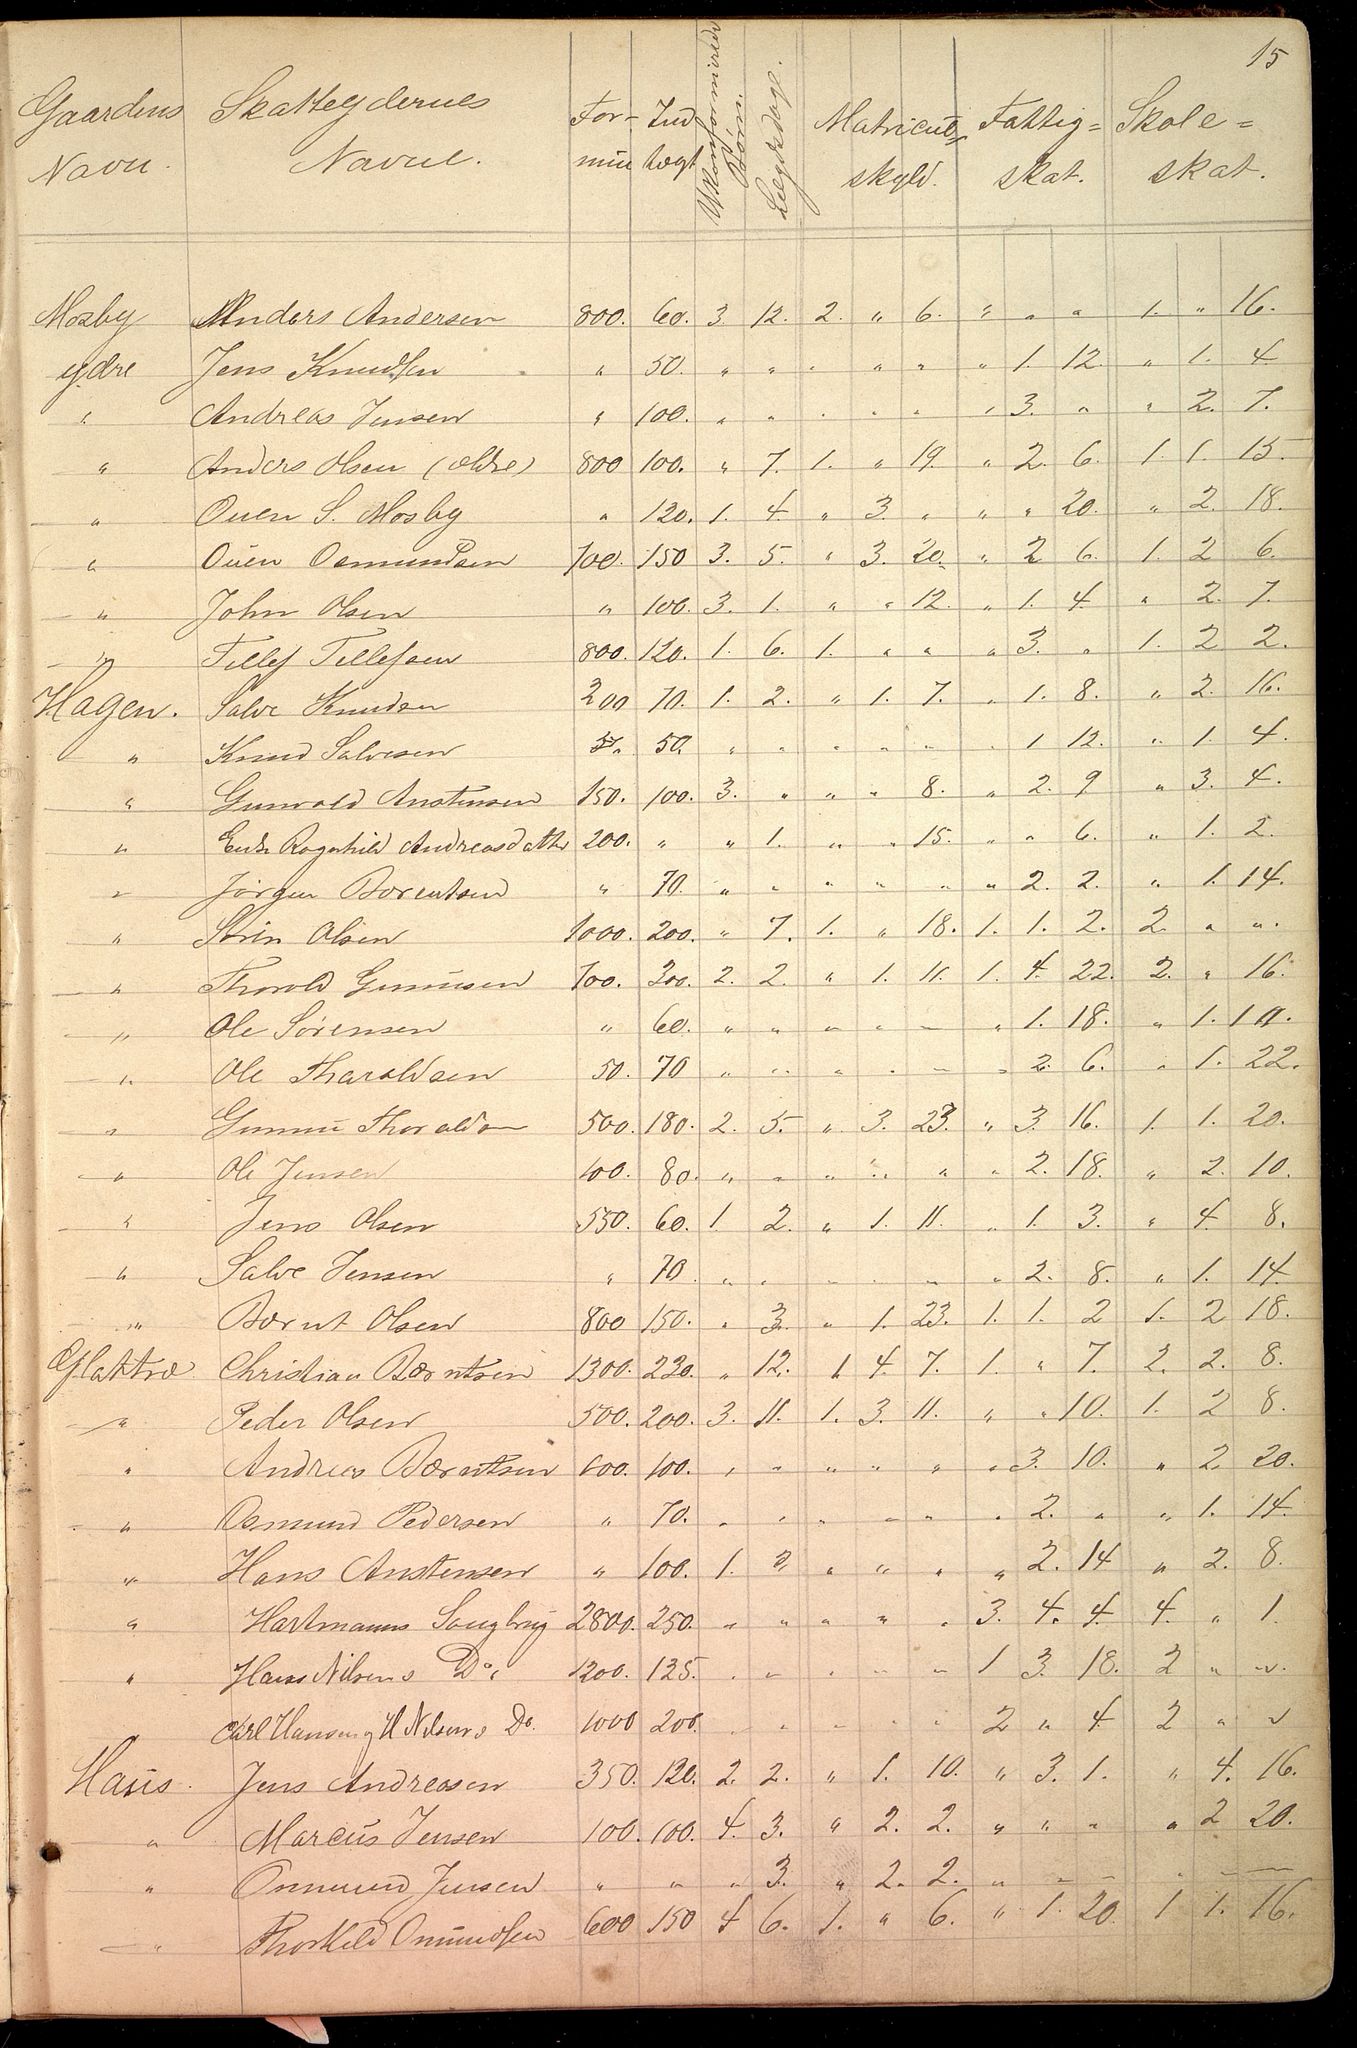 15
Gaardens Navn. Skatteydernes Navne. For- mue Ind tægt Ukonfirmerede Børn. Lægdsdage. Matricul= skyld. Fattig= skat. Skole= skat.
Mosby Anders Andersen 800. 60. 3. 12. 2. " 6. " " " 1. " 16.
ydre Jens Knudsen " 50. " " " " " " 1. 12. " 1. 4.
" Andreas Jensen " 100. " " " " " " 3. " " 2. 7.
" Anders Olsen (ældre) 800 100. " 7. 1. " 19. " 2. 6. 1. 1. 15.
" Ouen S. Mosby " 120. 1. 4. " 3. " " " 20. " 2. 18.
" Ouen Osmundsen 700. 150 3. 5. " 3. 20. " 2 6. 1. 2 6.
" John Olsen " 100. 3. 1. " " 12. " 1. 4. " 2. 7.
" Tellef Tellefsen 800. 120. 1. 6. 1. " " " 3. " 1. 2 2.
Hagen. Salve Knudsen 200 70. 1. 2. " 1. 7. " 1. 8. " 2. 16.
" Knud Salvesen " 50. " " " " " " 1 12. " 1. 4.
" Gunvald Anstensen 150. 100. 3. " " " 8. " 2. 9 " 3. 4.
" Enke Ragnhild Andreasdatter 200. " " 1. " " 15. " " 6. " 1. 2.
" Jørgen Berentsen " 70. " " " " " " 2. 2. " 1. 14.
" Sørin Olsen 1000. 200. " 7. 1. " 18. 1. 1. 2. 2. " "
" Thorold Gunnusen 700. 300. 2. 2. " 1. 11. 1. 4. 22. 2. " 16.
" Ole Sørensen " 60. " " " " " " 1. 18. " 1. 10.
" Ole Tharaldsen 50. 70 " " " " " " 2. 6. " 1. 22.
" Gunnu Thoraldsen 500. 180. 2. 5. " 3. 23. " 3. 16. 1. 1. 20.
" Ole Jensen 100. 80. " " " " " " 2. 18. " 2. 10.
" Jens Olsen 550. 60. 1. 2. " 1. 11. " 1. 3. " 4. 8.
" Salve Jensen " 70. " " " " " " 2. 8. " 1. 14.
" Bernt Olsen 800 150. " 3. " 1. 23. 1. 1. 2 1. 2 18.
Glattræ Christian Berntsen 1300. 230. " 12. 1 4. 7. 1. " 7. 2. 2. 8.
" Peder Olsen 500. 200. 3. 11. 1. 3. 11. " " 10. 1. 2 8.
" Andreas Berntsen 600. 100. " " " " " " 3. 10. " 2. 20.
" Osmund Pedersen " 70. " " " " " " 2. " " 1. 14.
" Hans Anstensen " 100. 1. 2 " " " " 2. 14 " 2. 8.
" Hartmanns Saugbrug 2800. 250. " " " " " 3. 4. 4. 4. " 1.
" Hans Nilsens Do. 1200. 125. " " " " " 1 3. 18. 2 " "
Carl Hansen og H Nilsens Do. 1000 200. " " " " " 2 " 4. 2 " "
Haus. Jens Andreasen 350. 120. 2. 2. " 1. 10. " 3. 1. " 4. 16.
" Marcus Jensen 100. 100. 4. 3. " 2. 2. " " " " 2 20.
" Ommund Jensen " " " 3. " 2. 2. " " " " " "
" Thorkild Omundsen 600 150 4 6. 1. " 6. " 1. 20. 1 1. 16.